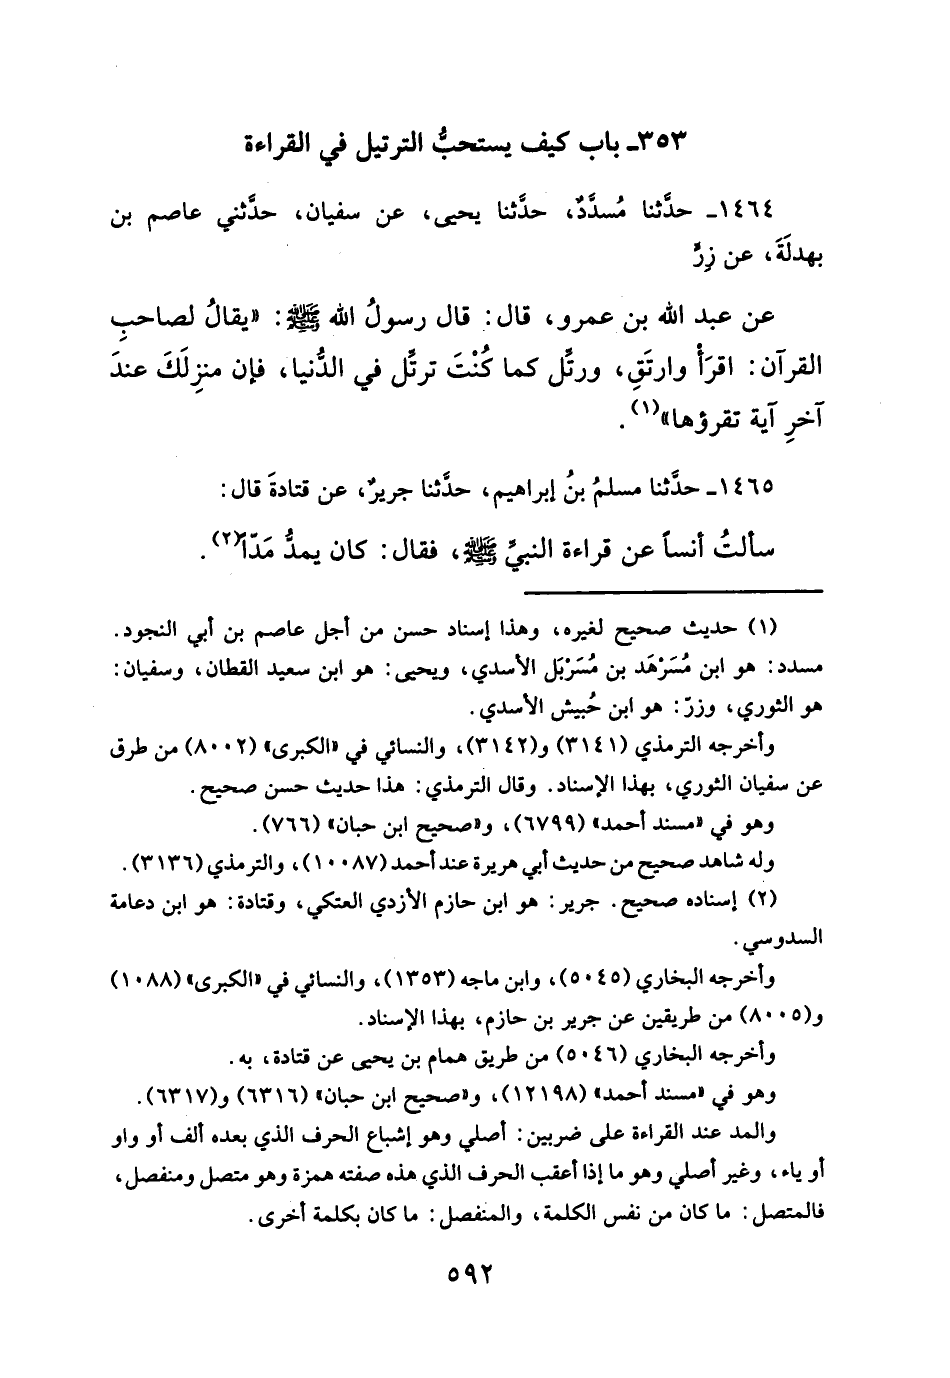 ٣٥٣ـ باب كيف يستحبُّ الترتيل في القراءة
١٤٦٤ـ حدَّثنا مُسدَّدٌ، حدَّثنا يحيى، عن سفيان، حدَّثني عاصم بن
بهدلَةَ، عن زِرٍّ
عن عبد الله بن عمرو، قال: قال رسولُ الله ﷺ: «يقالُ لصاحبِ
القرآن: اقرَأْ وارتَقِ، ورتِّل كما كُنْتَ ترتِّل في الدُّنيا، فإن منزِلَكَ عندَ
آخرِ آية تقرؤها»(١).
١٤٦٥ـ حدَّثنا مسلمُ بنُ إبراهيم، حدَّثنا جريرٌ، عن قتادةَ قال:
سألتُ أنساً عن قراءة النبيِّ ﷺ، فقال: كان يمدُّ مَدّاً(٢).
(١) حديث صحيح لغيره، وهذا إسناد حسن من أجل عاصم بن أبي النجود.
مسدد: هو ابن مُسَرْهَد بن مُسَرْبَل الأسدي، ويحيى: هو ابن سعيد القطان، وسفيان:
هو الثوري، وزرّ: هو ابن حُبيش الأسدي.
وأخرجه الترمذي (٣١٤١) و(٣١٤٢)، والنسائي في «الكبرى» (٨٠٠٢) من طرق
عن سفيان الثوري، بهذا الإسناد. وقال الترمذي: هذا حديث حسن صحيح.
وهو في «مسند أحمد» (٦٧٩٩)، و«صحيح ابن حبان» (٧٦٦).
وله شاهد صحيح من حديث أبي هريرة عند أحمد (١٠٠٨٧)، والترمذي (٣١٣٦).
(٢) إسناده صحيح. جرير: هو ابن حازم الأزدي العتكي، وقتادة: هو ابن دعامة
السدوسي.
وأخرجه البخاري (٥٠٤٥)، وابن ماجه (١٣٥٣)، والنسائي في «الكبرى» (١٠٨٨)
و(٨٠٠٥) من طريقين عن جرير بن حازم، بهذا الإسناد.
وأخرجه البخاري (٥٠٤٦) من طريق همام بن يحيى عن قتادة، به.
وهو في «مسند أحمد» (١٢١٩٨)، و«صحيح ابن حبان» (٦٣١٦) و(٦٣١٧).
والمد عند القراءة على ضربين: أصلي وهو إشباع الحرف الذي بعده ألف أو واو
أو ياء، وغير أصلي وهو ما إذا أعقب الحرف الذي هذه صفته همزة وهو متصل ومنفصل،
فالمتصل: ما كان من نفس الكلمة، والمنفصل: ما كان بكلمة أخرى.
٥٩٢